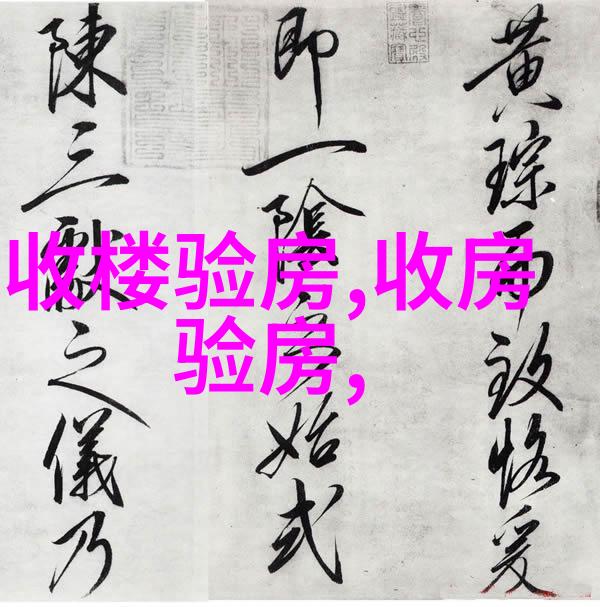 收楼验房,收房
验房,
黄琮而致恪爰
即一陰始式
陳三獻之儀乃